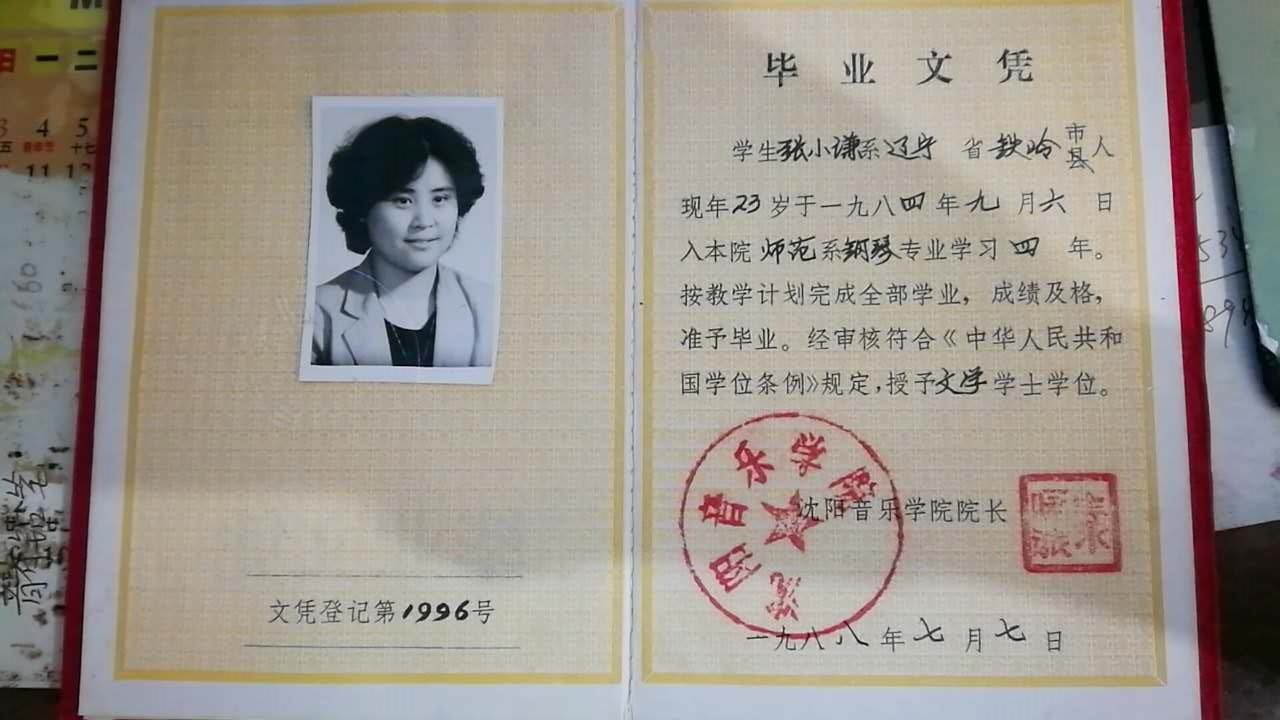 日 一 二
3 4 5
五 春年节 十七
11 12
160
文凭登记第1996号
毕业文凭
学生张小谦系辽宁 省铁岭市县人
现年23岁于一九八四年九月六日
入本院师范系钢琴专业学习四年。
按教学计划完成全部学业,成绩及格,
准予毕业。经审核符合《中华人民共和
国学位条例》规定,授予文学学士学位。
沈阳音乐学院
沈阳音乐学院院长
一九八八年七月七日
534
898